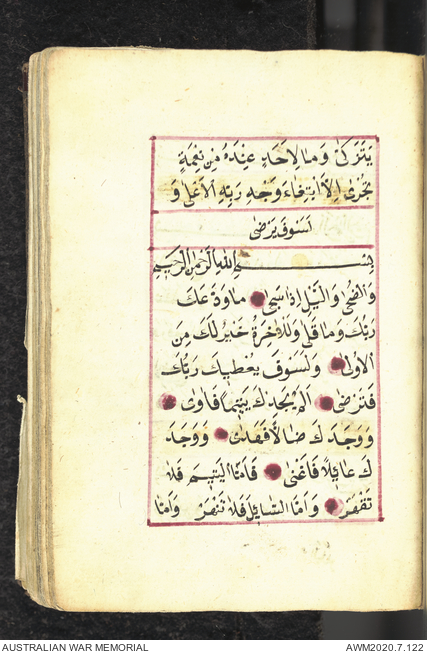 يَتَزَكّىٰ وَمَا لِاَحَدٍ عِنْدَهُ مِنْ نِعْمَةٍ
تُجْزٰى اِلَّا ابْتِغَاءَ وَجْهِ رَبِّهِ الْاَعْلٰى وَ
لَسَوْفَ يَرْضٰى
بِسْمِ اللهِ الرَّحْمٰنِ الرَّحِيمِ
وَالضُّحٰى وَالَّيْلِ اِذَا سَجٰى مَا وَدَّعَكَ
رَبُّكَ وَمَا قَلٰى وَلَلْاٰخِرَةُ خَيْرٌ لَكَ مِنَ
الْاُولٰى وَلَسَوْفَ يُعْطِيكَ رَبُّكَ
فَتَرْضٰى اَلَمْ يَجِدْكَ يَتِيمًا فَاٰوٰى
وَوَجَدَكَ ضَالًّا فَهَدٰى وَوَجَدَ
كَ عَائِلًا فَاَغْنٰى فَاَمَّا الْيَتِيمَ فَلَا
تَقْهَرْ وَاَمَّا السَّايِلَ فَلَا تَنْهَرْ وَاَمَّا
AUSTRALIAN WAR MEMORIAL
AWM2020.7.122